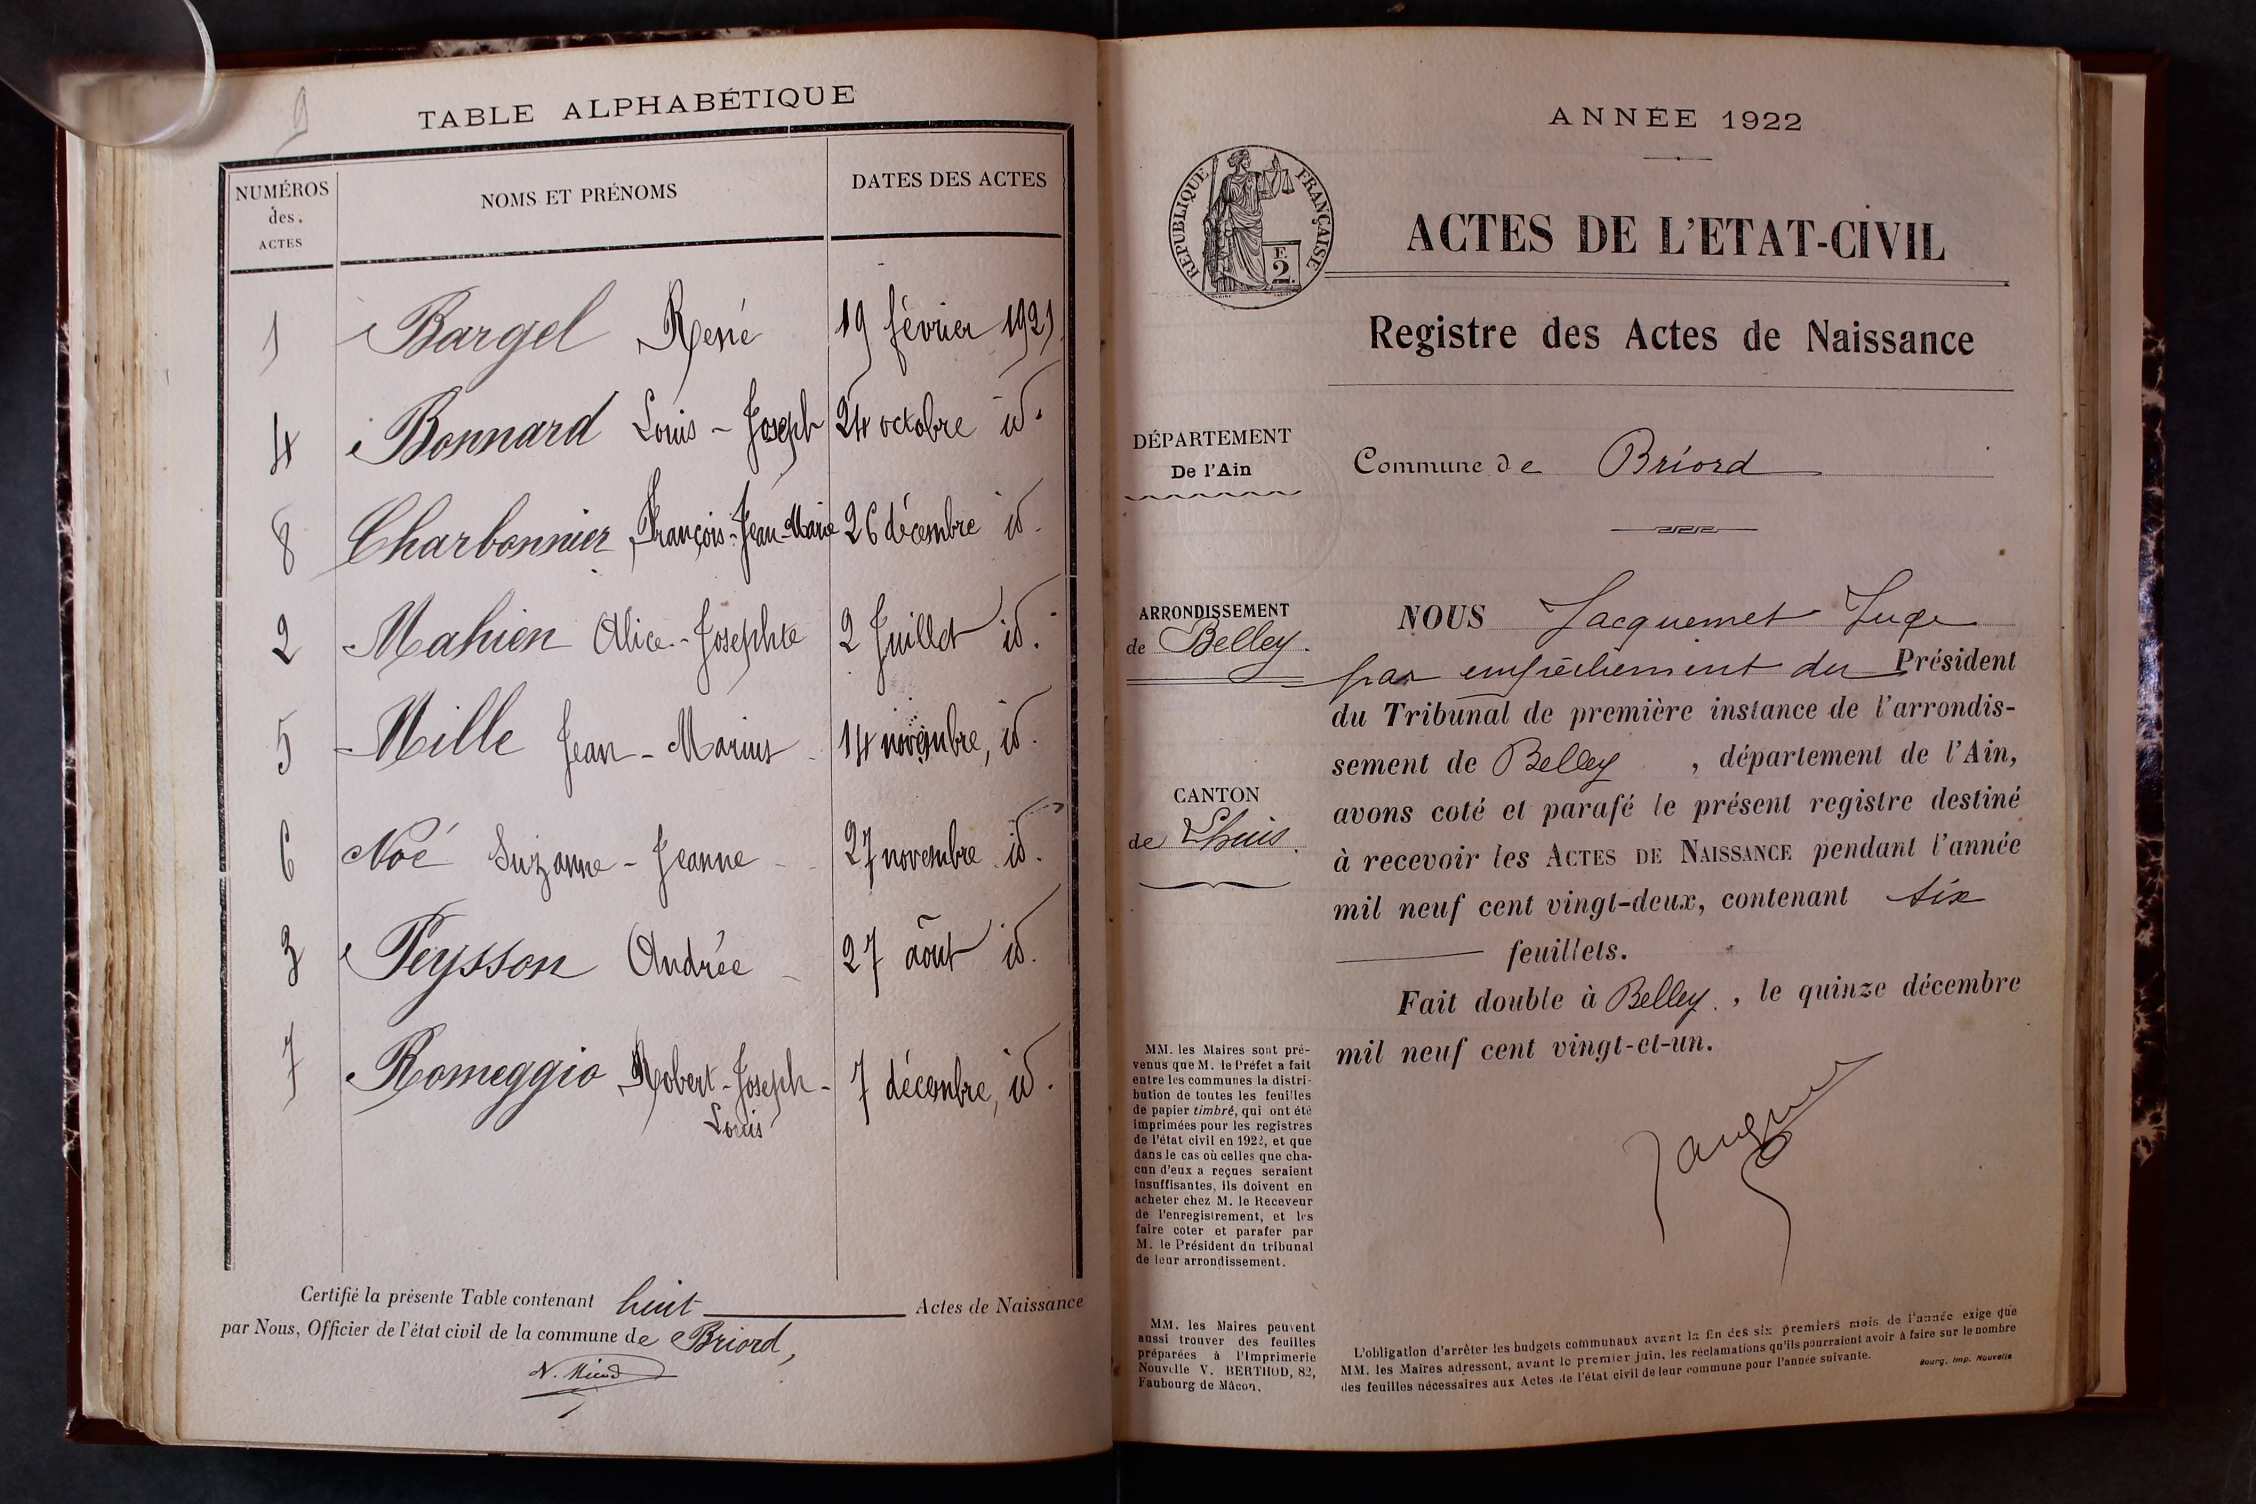 9
TABLE ALPHABÉTIQUE
NUMÉROS des. ACTES
NOMS ET PRÉNOMS
DATES DES ACTES
1 Bargel René 19 février 1921
4 Bonnard Louis - Joseph 24 octobre id.
8 Charbonnier François-Jean-Marie 26 décembre id.
2 Mahien Alice - Josephte 2 Juillet id.
5 Mille Jean - Marius 14 novembre, id.
6 Noé Suzanne - Jeanne - 27 novembre id.
3 Peysson Andrée - 27 août id.
7 Romeggio Robert - Joseph - 7 décembre, id.
Louis
Certifié la présente Table contenant huit Actes de Naissance
par Nous, Officier de l'état civil de la commune de Briord,
ANNÉE 1922
RÉPUBLIQUE FRANÇAISE
F.
2
ACTES DE L'ETAT-CIVIL
Registre des Actes de Naissance
DÉPARTEMENT
De l'Ain
Commune de Briord
ARRONDISSEMENT
de Belley.
CANTON
de Lhuis.
NOUS Jacquemet Juge
par empêchement du Président
du Tribunal de première instance de l'arrondis-
sement de Belley, département de l'Ain,
avons coté et parafé le présent registre destiné
à recevoir les ACTES DE NAISSANCE pendant l'année
mil neuf cent vingt-deux, contenant six
feuillets.
Fait double à Belley., le quinze décembre
mil neuf cent vingt-et-un.
MM. les Maires sont pré-
venus que M. le Préfet a fait
entre les communes la distri-
bution de toutes les feuilles
de papier timbré, qui ont été
imprimées pour les registres
de l'état civil en 1922, et que
dans le cas où celles que cha-
cun d'eux a reçues seraient
insuffisantes, ils doivent en
acheter chez M. le Receveur
de l'enregistrement, et les
faire coter et parafer par
M. le Président du tribunal
de leur arrondissement.
MM. les Maires peuvent
aussi trouver des feuilles
préparées à l'Imprimerie
Nouvelle V. BERTHOD, 82,
Faubourg de Mâcon.
L'obligation d'arrêter les budgets communaux avant la fin des six premiers mois de l'année exige que
MM. les Maires adressent, avant le premier juin, les réclamations qu'ils pourraient avoir à faire sur le nombre
des feuilles nécessaires aux Actes de l'état civil de leur commune pour l'année suivante.
Bourg. Imp. Nouvelle